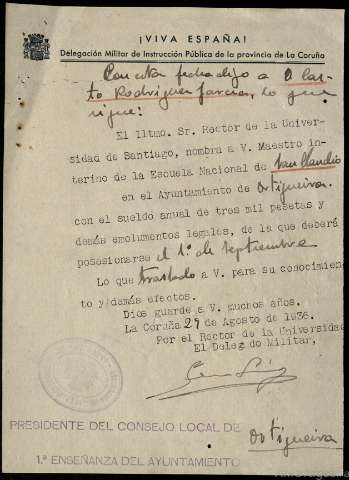 ¡VIVA ESPAÑA!
Delegación Militar de Instrucción Pública de la provincia de La Coruña
Con esta fecha digo a D Cas-
to Rodríguez García, lo que
sigue:
El Iltmo. Sr. Rector de la Univer-
sidad de Santiago, nombra a V. Maestro in-
terino de la Escuela Nacional de San Claudio
en el Ayuntamiento de Ortigueira.
con el sueldo anual de tres mil pesetas y
damás emolumentos legales, de la que deberá
posesionarse el 1º de septiembre
Lo que traslado a V. para su conocimien
to y demás efectos.
Dios guarde a V. muchos años.
La Coruña 29 de Agosto de 1936.
Por el Rector de la Universidad
El Delegado Militar,
PRESIDENTE DEL CONSEJO LOCAL DE
Ortigueira
1.ª ENSEÑANZA DEL AYUNTAMIENTO